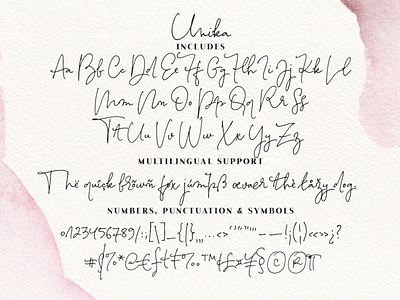 Unika
INCLUDES
Aa Bb Cc Dd Ee Ff Gg Hh Ii Jj Kk Ll
Mm Nn Oo Pp Qq Rr Ss
Tt Uu Vv Ww Xx Yy Zz
MULTILINGUAL SUPPORT
Thë quîçk brõwñ føx júmpß œvaer thè làzy dog.
NUMBERS, PUNCTUATION & SYMBOLS
0123456789/:;[\]_{|},„…<>‘’“”'"–—!¡()«»¡?
#$%*@€ƒ‡‰™¢£¤¥§©®¶